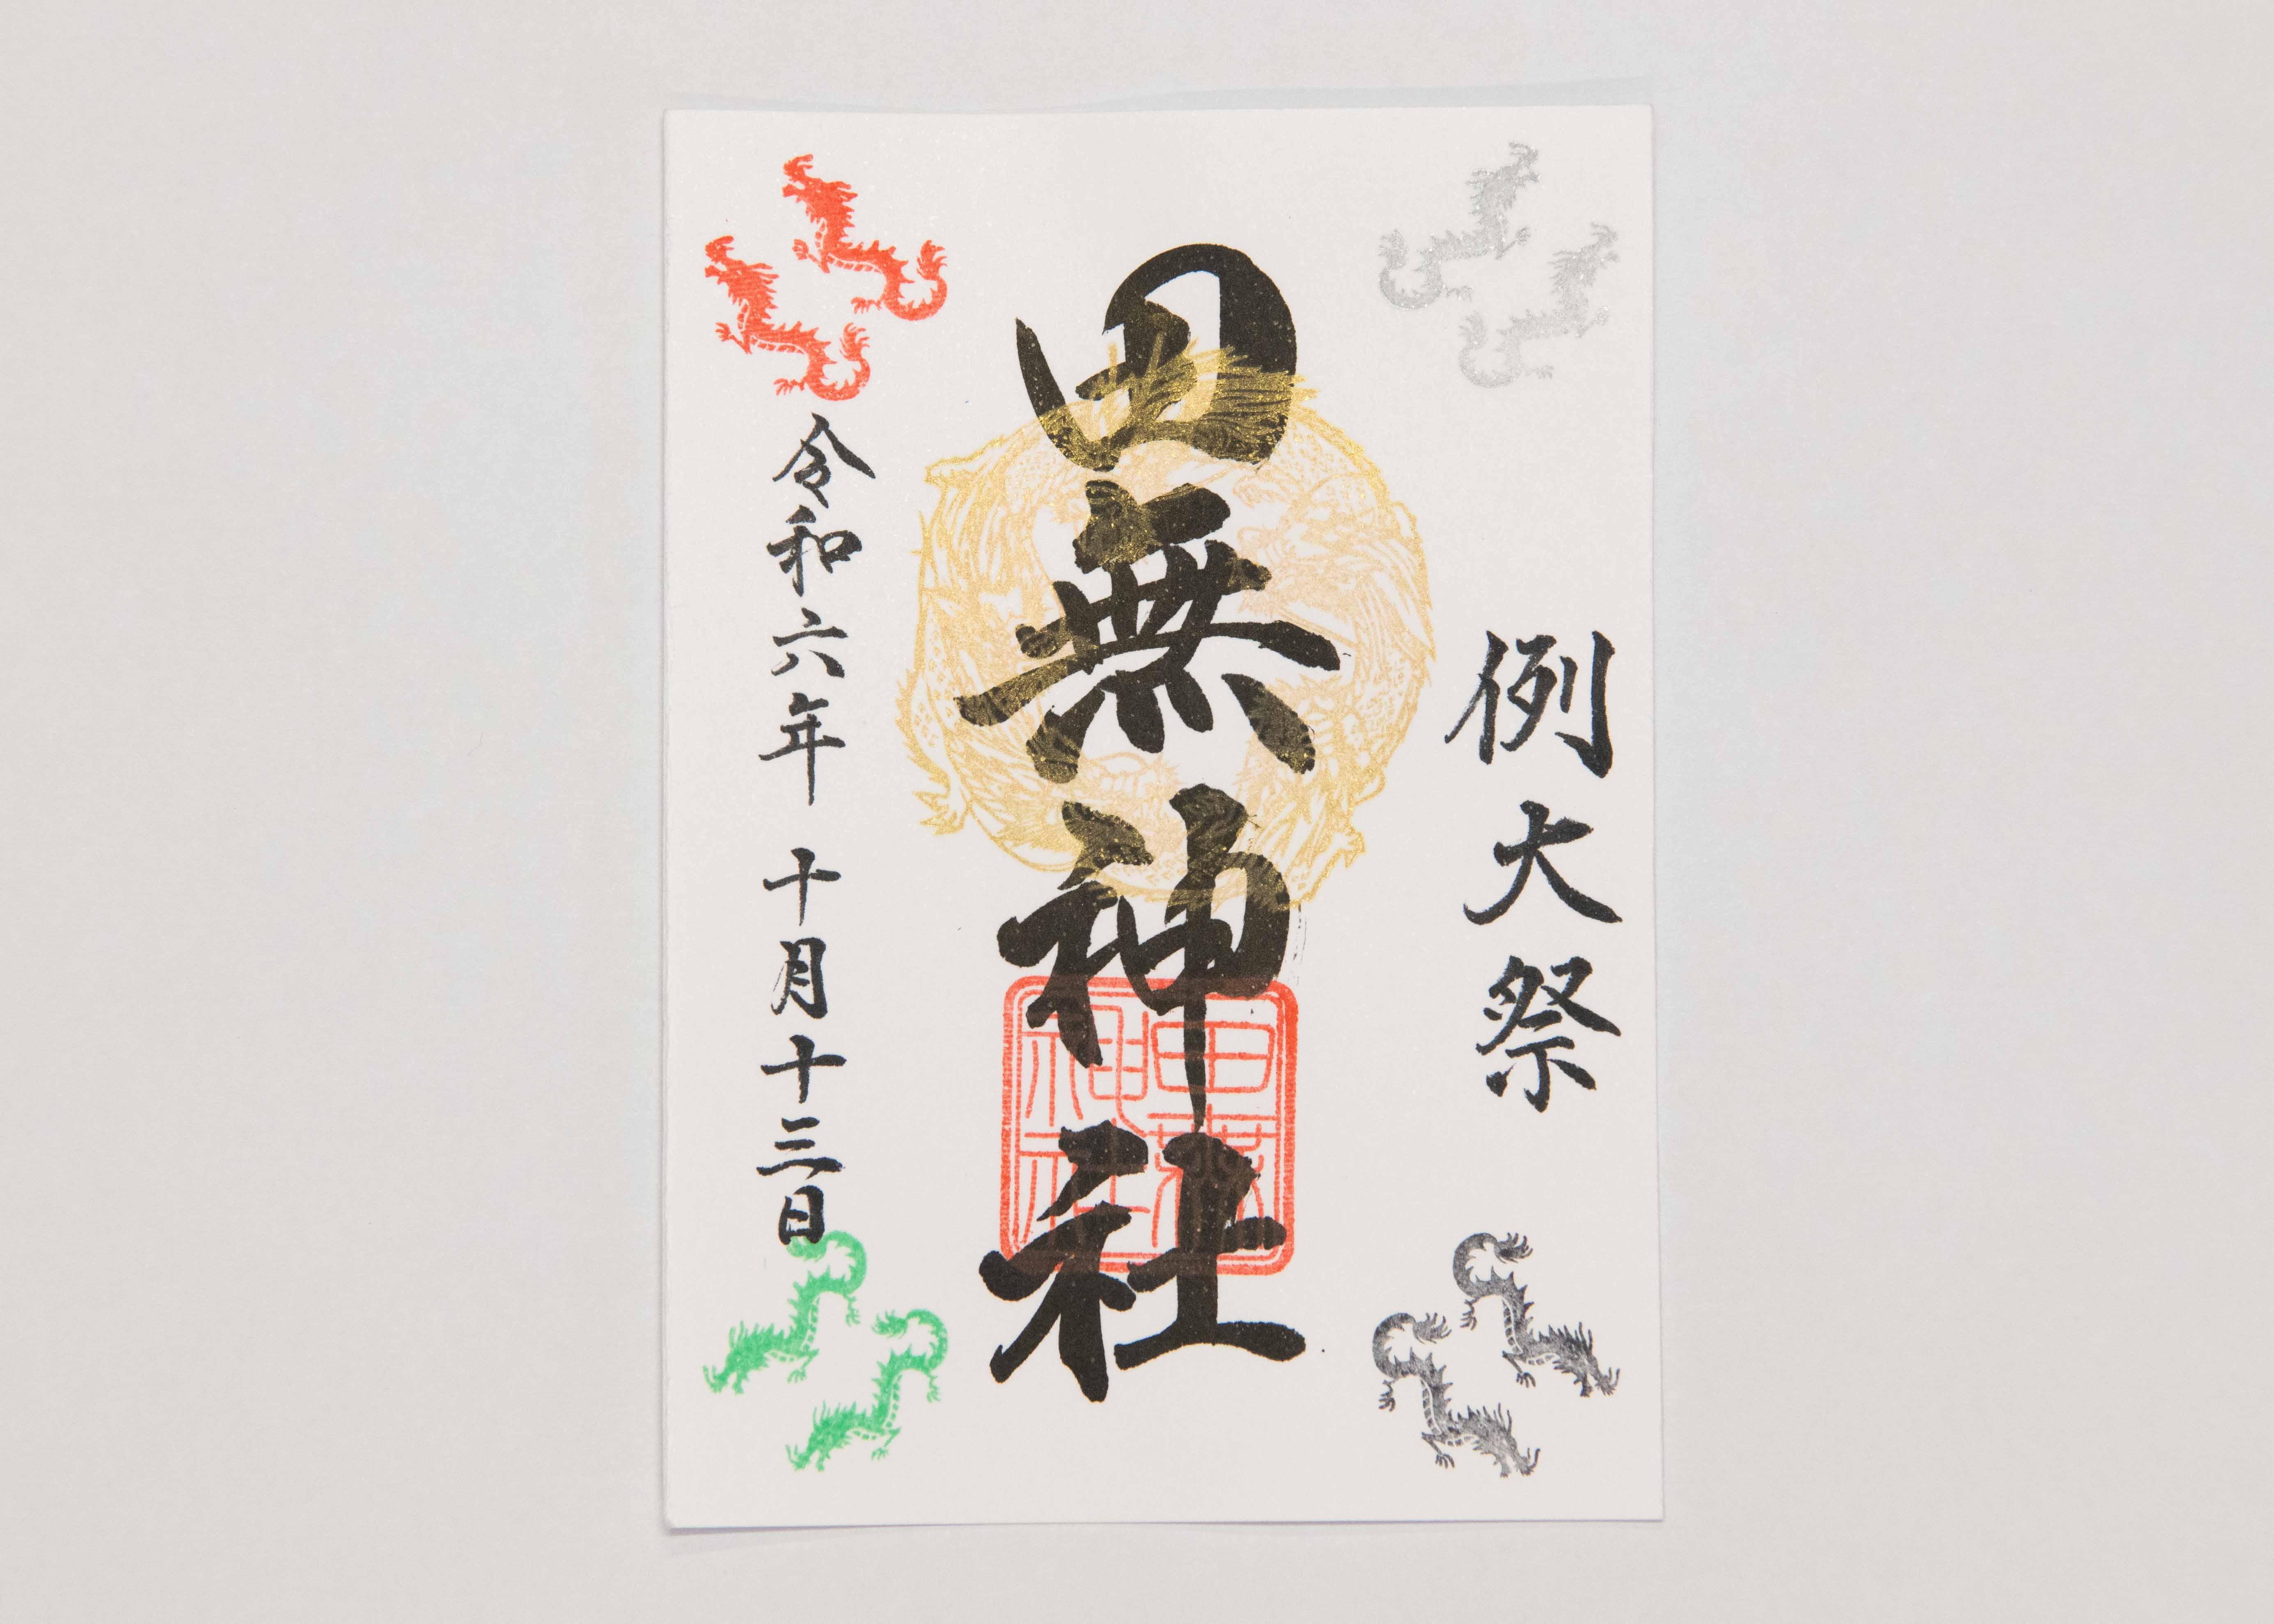 例大祭
田無神社
田無神社
令和六年 十月十三日